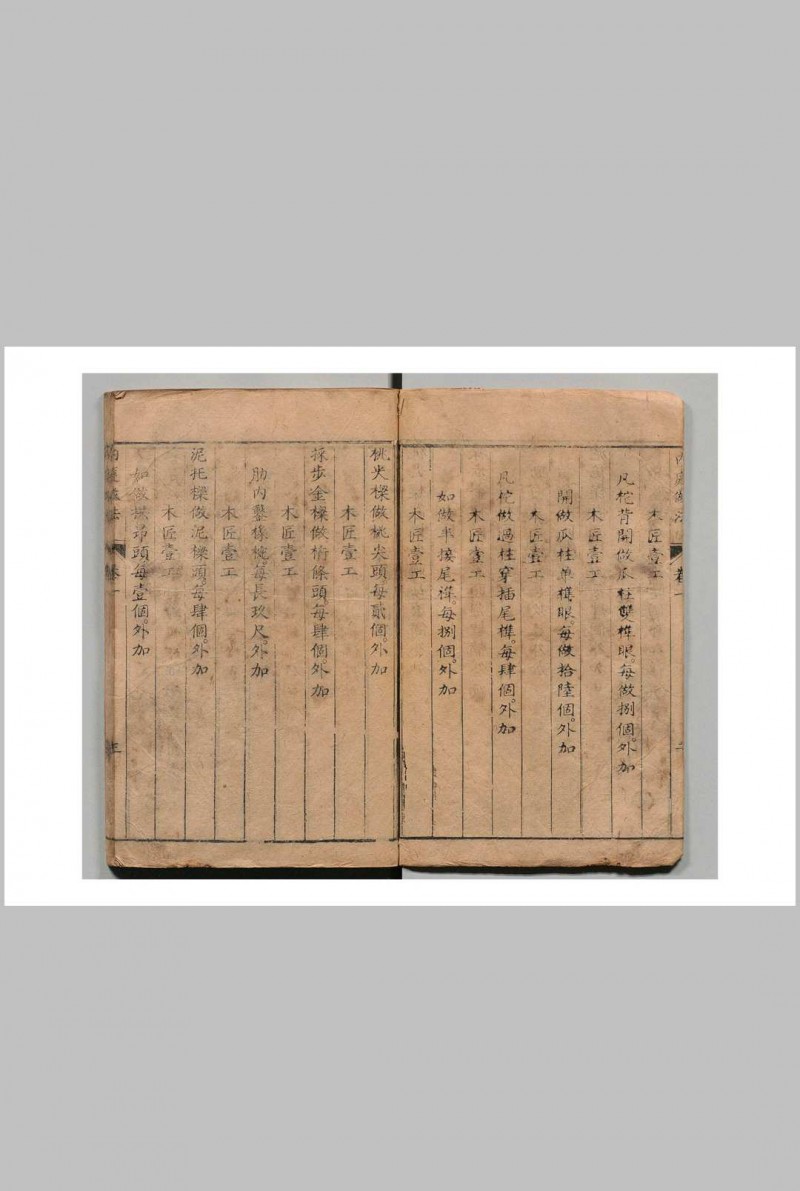 木匠壹工
凡柁背開做瓜柱雙榫眼。每做捌個。外加
木匠壹工
開做瓜柱单榫眼。每做拾陸個。外加
木匠壹工
凡柁做過柱穿插尾榫。每肆個。外加
木匠壹工
如做半接尾榫。每捌個。外加
木匠壹工
桃尖樑做桃尖頭。每貳個。外加
木匠壹工
採步金樑做桁條頭。每肆個。外加
木匠壹工
肋內鑿椽椀。每長玖尺。外加
木匠壹工
泥托樑做泥樑頭。每肆個。外加
木匠壹工
如做 昻頭。每壹個。外加
卷一
三